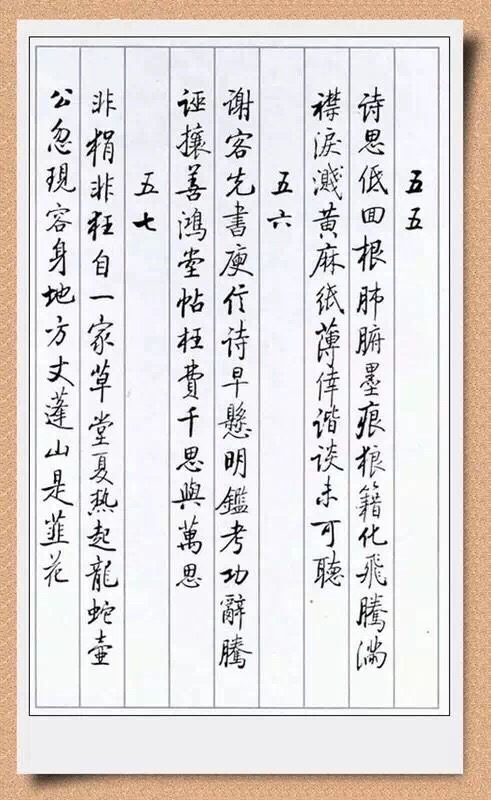 五五
诗思低回根肺腑墨痕狼籍化飛騰满
襟淚濺黄麻紙薄倖谐谈未可聽
五六
谢客先書庾信诗早懸明鑑考功辭騰
誣攘善鴻堂帖枉費千思與萬思
五七
非狷非狂自一家草堂夏热起龍蛇壶
公忽現容身地方丈蓬山是韮花